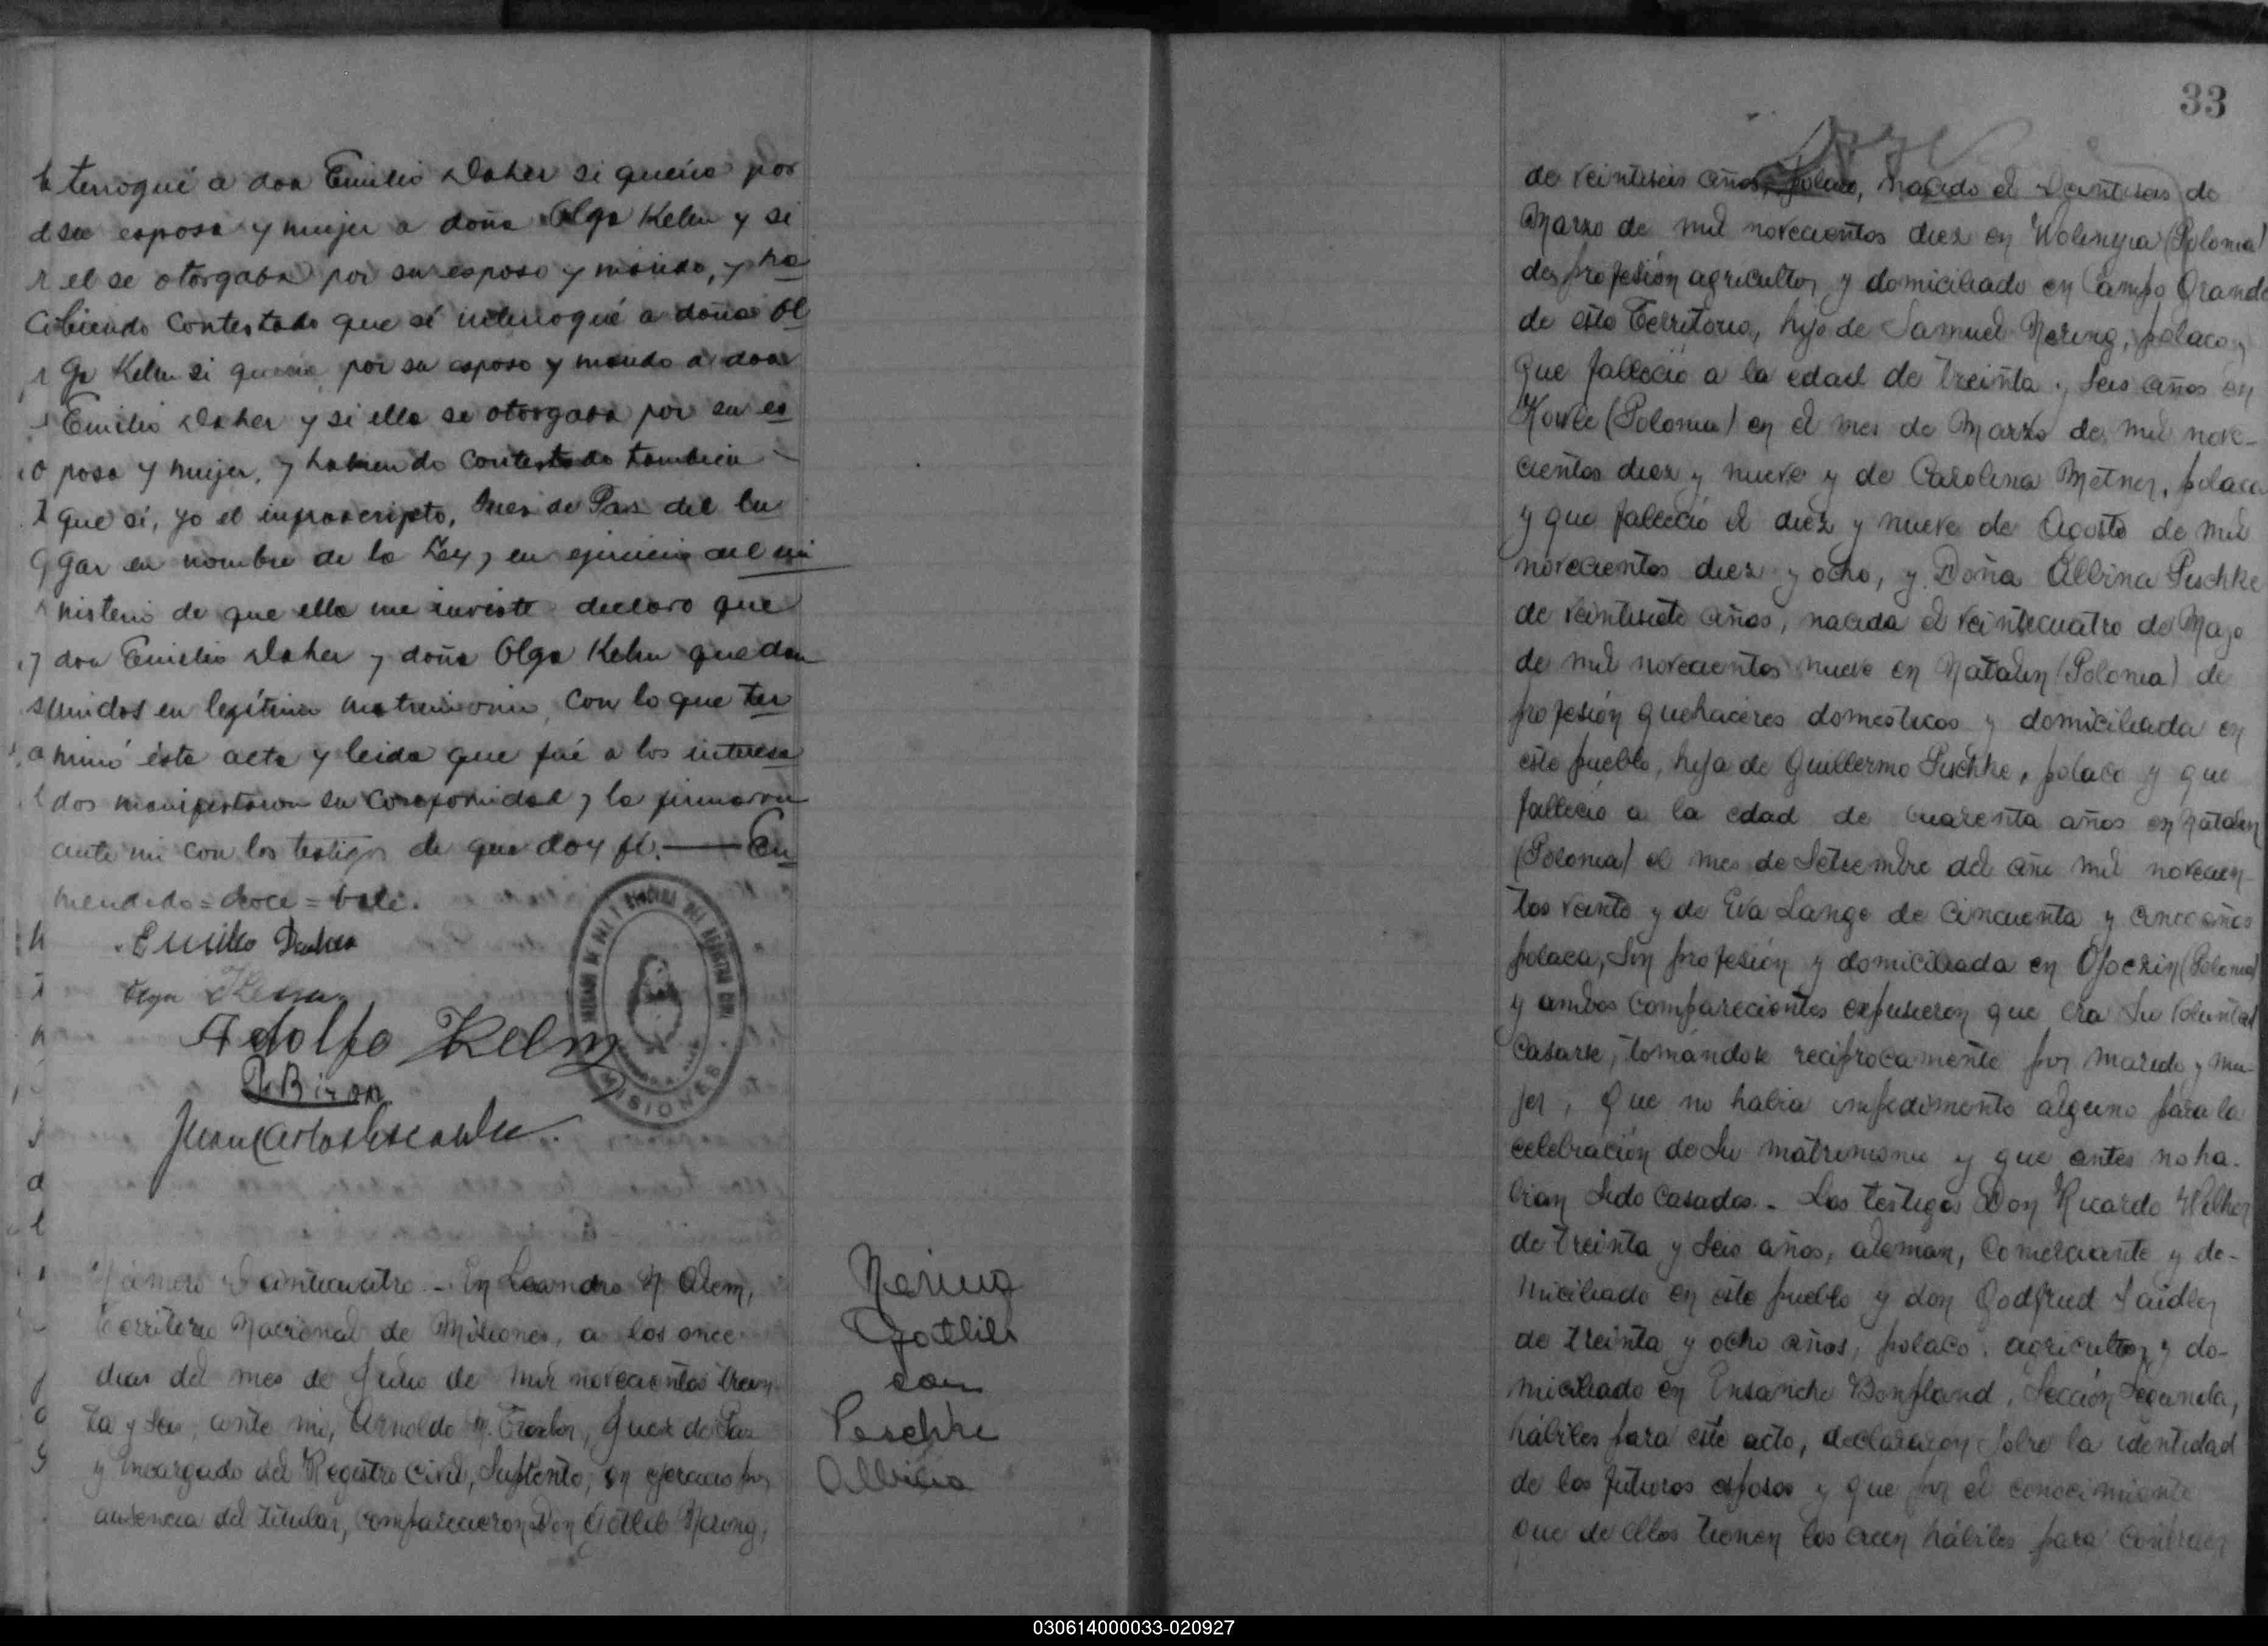 terrogué a don Emilio Daher si quería por
su esposa y mujer a doña Olga Kelm y si
el se otorgaba por su esposo y marido, y ha
biendo contestado que sí interrogué a doña Ol
ga Kelm si quería por su esposo y marido a don
Emilio Daher y si ella se otorgaba por su es
posa y mujer, y habiendo contestado tambien
que sí, yo el infrascripto, Juez de Paz del lu
gar en nombre de la Ley, en ejercicio del mi
nisterio de que ella me inviste declaro que
don Emilio Daher y doña Olga Kelm quedan
unidos en legítimo matrimonio, con lo que ter
minó ésta acta y leida que fué a los interesa
dos manifestaron su conformidad y la firmaron
ante mi con los testigos de que doy fé. — En
mendado = = vale.
Emilio Daher
Olga Kelm
Adolfo Kelm
JUZGADO DE PAZ Y OFICINA DEL REGISTRO CIVIL
MISIONES
Número Veinticuatro.- En Leandro N Alem,
Territorio Nacional de Misiones, a los once
dias del mes de Julio de mil novecientos trein
ta y seis, ante mi, Arnoldo Juez de Paz
y Encargado del Registro Civil, Suplente, en ejercicio por
ausencia del titular, comparecieron Don Gotlib Nering,
Nering
Gottlib
con
Peschke
Albina
33
de veintiseis años, polaco, nacido el veintiseis de
Marzo de mil novecientos diez en Wolinyia (Polonia)
de profesión agricultor y domiciliado en Campo Grande
de este Territorio, hijo de Samuel Nering, polaco y
que falleció a la edad de treinta y seis años en
Kowle (Polonia) en el mes de Marzo de mil nove-
cientos diez y nueve y de Carolina Metner, polaca
y que falleció el diez y nueve de Agosto de mil
novecientos diez y ocho, y Doña Albina Peschke
de veintisiete años, nacida el veinticuatro de Mayo
de mil novecientos nueve en Natalin (Polonia) de
profesión quehaceres domesticos y domiciliada en
este pueblo, hija de Guillermo Peschke, polaco y que
falleció a la edad de cuarenta años en Natalin
(Polonia) el mes de Setiembre del año mil novecien-
tos veinte y de Eva Lange de cincuenta y cinco años
polaca, sin profesión y domiciliada en Osoczin (Polonia)
y ambos comparecientes expusieron que era su voluntad
casarse, tomándose reciprocamente por marido y mu-
jer, Que no habia impedimento alguno para la
celebración de su matrimonio y que antes no ha-
bian sido casados.- Los testigos Don Ricardo
de treinta y seis años, aleman, comerciante y do-
miciliado en este pueblo y don Godfried Saidler
de treinta y ocho años, polaco, agricultor y do-
miciliado en Ensanche Bonpland, Sección Segunda,
hábiles para este acto, declararon sobre la identidad
de los futuros esposos y que por el conocimiento
que de ellos tienen los creen hábiles para contraer
030614000033-020927